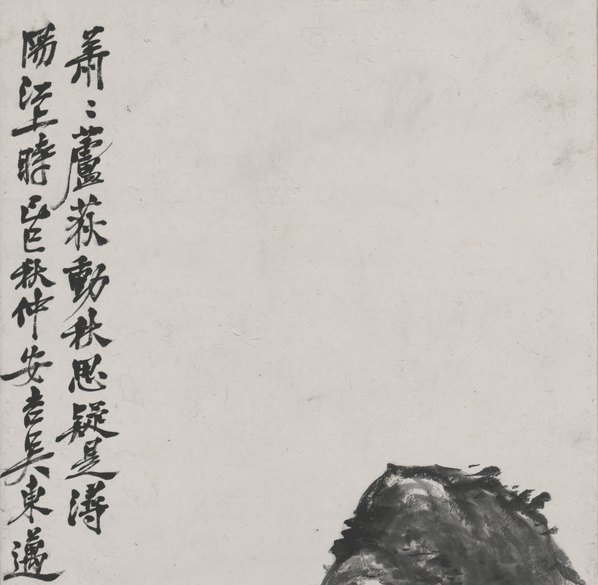 蕭〻蘆荻動秋思疑是潯
陽江上時己巳秋仲安吉吳東邁